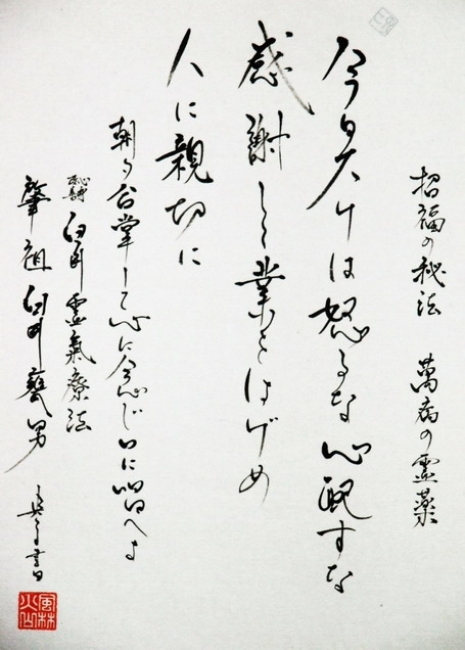 招福の秘法　萬病の霊薬
今日丈けは怒るな心配すな
感謝して業をはげめ
人に親切に
朝夕合掌して心に念じ口に唱へよ
臼井霊氣療法
肇祖臼井甕男
風林火山